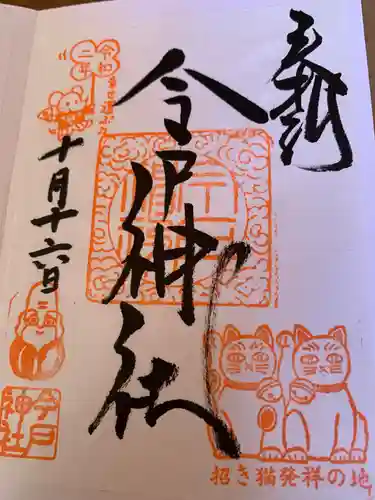 奉拝
今戸神社
令和
二年
十月十六日
今戸
神社
招き猫発祥の地